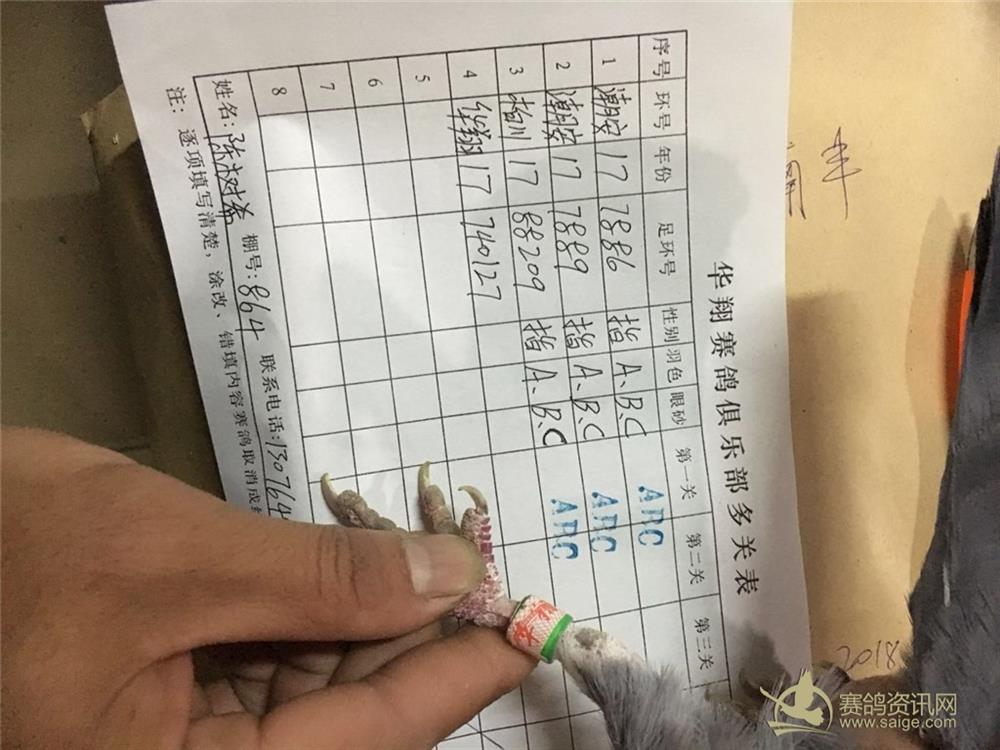 华翔赛鸽俱乐部多关表
序号 环号 年份 足环号 性别 羽色 眼砂 第一关 第二关 第三关
1 潮安 17 7886 指 A、B、C ABC
2 潮安 17 7889 指 A、B、C ABC
3 17 88209 指 A、B、C ABC
4 华翔 17 740127
5
6
7
8
姓名：陈树 棚号：864 联系电话：130764
注：逐项填写清楚，涂改、错填内容赛鸽取消成
2018
赛鸽资讯网
www.saige.com